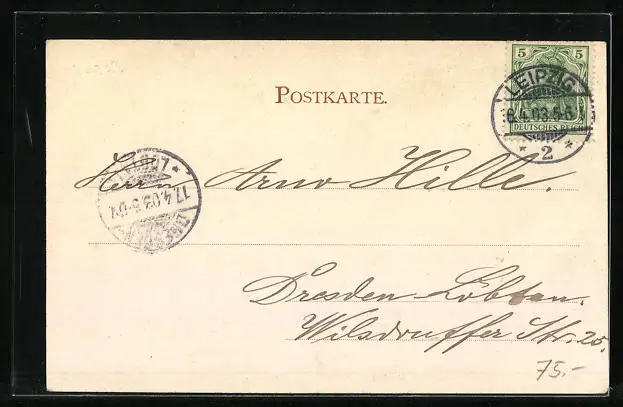 5 5
LEIPZIG
6.4.03.5-6
DEUTSCHES REICH
* 2 *
POSTKARTE.
17.4.03.5-6V.
Herrn Arno Hille.
Dresden-Löbtau.
Wilsdruffer Str. 25.
75.-